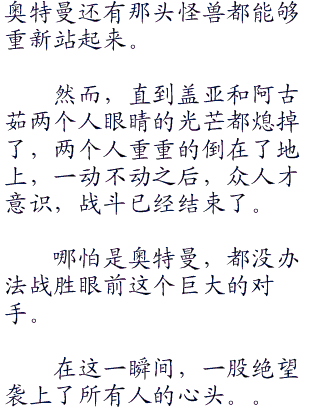 奥特曼还有那头怪兽都能够
重新站起来。
然而，直到盖亚和阿古
茹两个人眼睛的光芒都熄掉
了，两个人重重的倒在了地
上，一动不动之后，众人才
意识，战斗已经结束了。
哪怕是奥特曼，都没办
法战胜眼前这个巨大的对
手。
在这一瞬间，一股绝望
袭上了所有人的心头。。